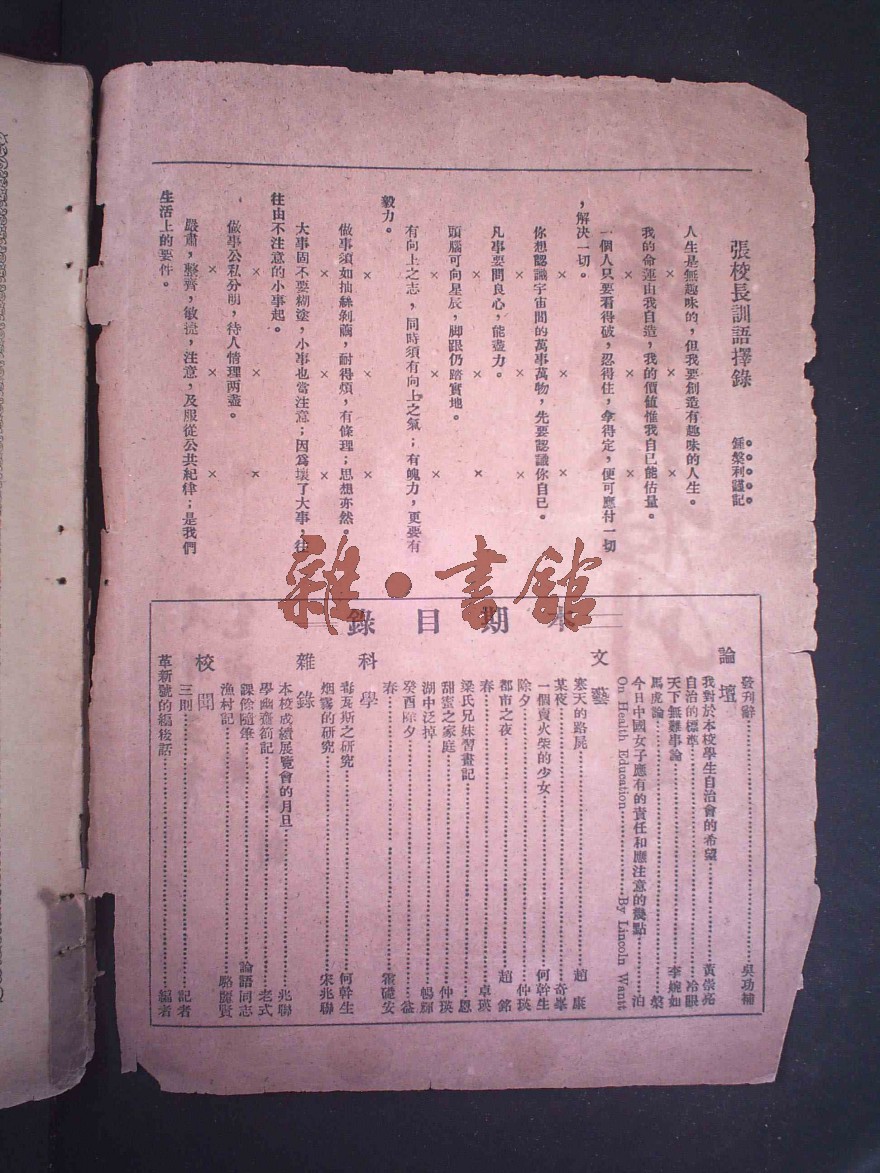 張校長訓語擇錄
鍾槃利謹記
人生是無趣味的,但我要創造有趣味的人生。
× × ×
我的命運由我自造,我的價値惟我自已能估量。
× × ×
一個人只要看得破,忍得住,拿得定,便可應付一切
,解決一切。
× × ×
你想認識宇宙間的萬事萬物,先要認識你自已。
× × ×
凡事要問良心,能盡力。
× × ×
頭腦可向星辰,脚跟仍踏實地。
× × ×
有向上之志,同時須有向上之氣;有魄力,更要有
毅力。
× × ×
做事須如抽絲剝繭,耐得煩,有條理;思想亦然。
× × ×
大事固不要糊塗,小事也當注意;因爲壞了大事,往
往由不注意的小事起。
× × ×
做事公私分明,待人情理兩盡。
× × ×
嚴肅,整齊,敏捷,注意,及服從公共紀律;是我們
生活上的要件。
本期目錄
論壇
發刊辭 吳功補
我對於本校學生自治會的希望 黃崇亮
自治的標準 冷眼
天下無難事論 李婉如
馬虎論 槃
今日中國女子應有的責任和應注意的幾點 泊
On Health Education By Lincoln Wantt
文藝
寒天的路屍 趙康
某夜 奇峯
一個賣火柴的少女 何幹生
除夕 仲瑛
都市之夜 趙銘
春 卓瑛
梁氏兄妹習畫記 恩
甜蜜之家庭 仲瑛
湖中泛掉 暢輝
癸酉除夕 益
春 霍礎安
科學
毒瓦斯之研究 何幹生
烟霧的研究 宋兆聯
雜錄
本校成績展覽會的月旦 兆聯
學幽齋筍記 老式
課餘隨筆 論語同志
漁村記 駱麗賢
校聞
三則 記者
革新號的編後話 編者
雜·書館